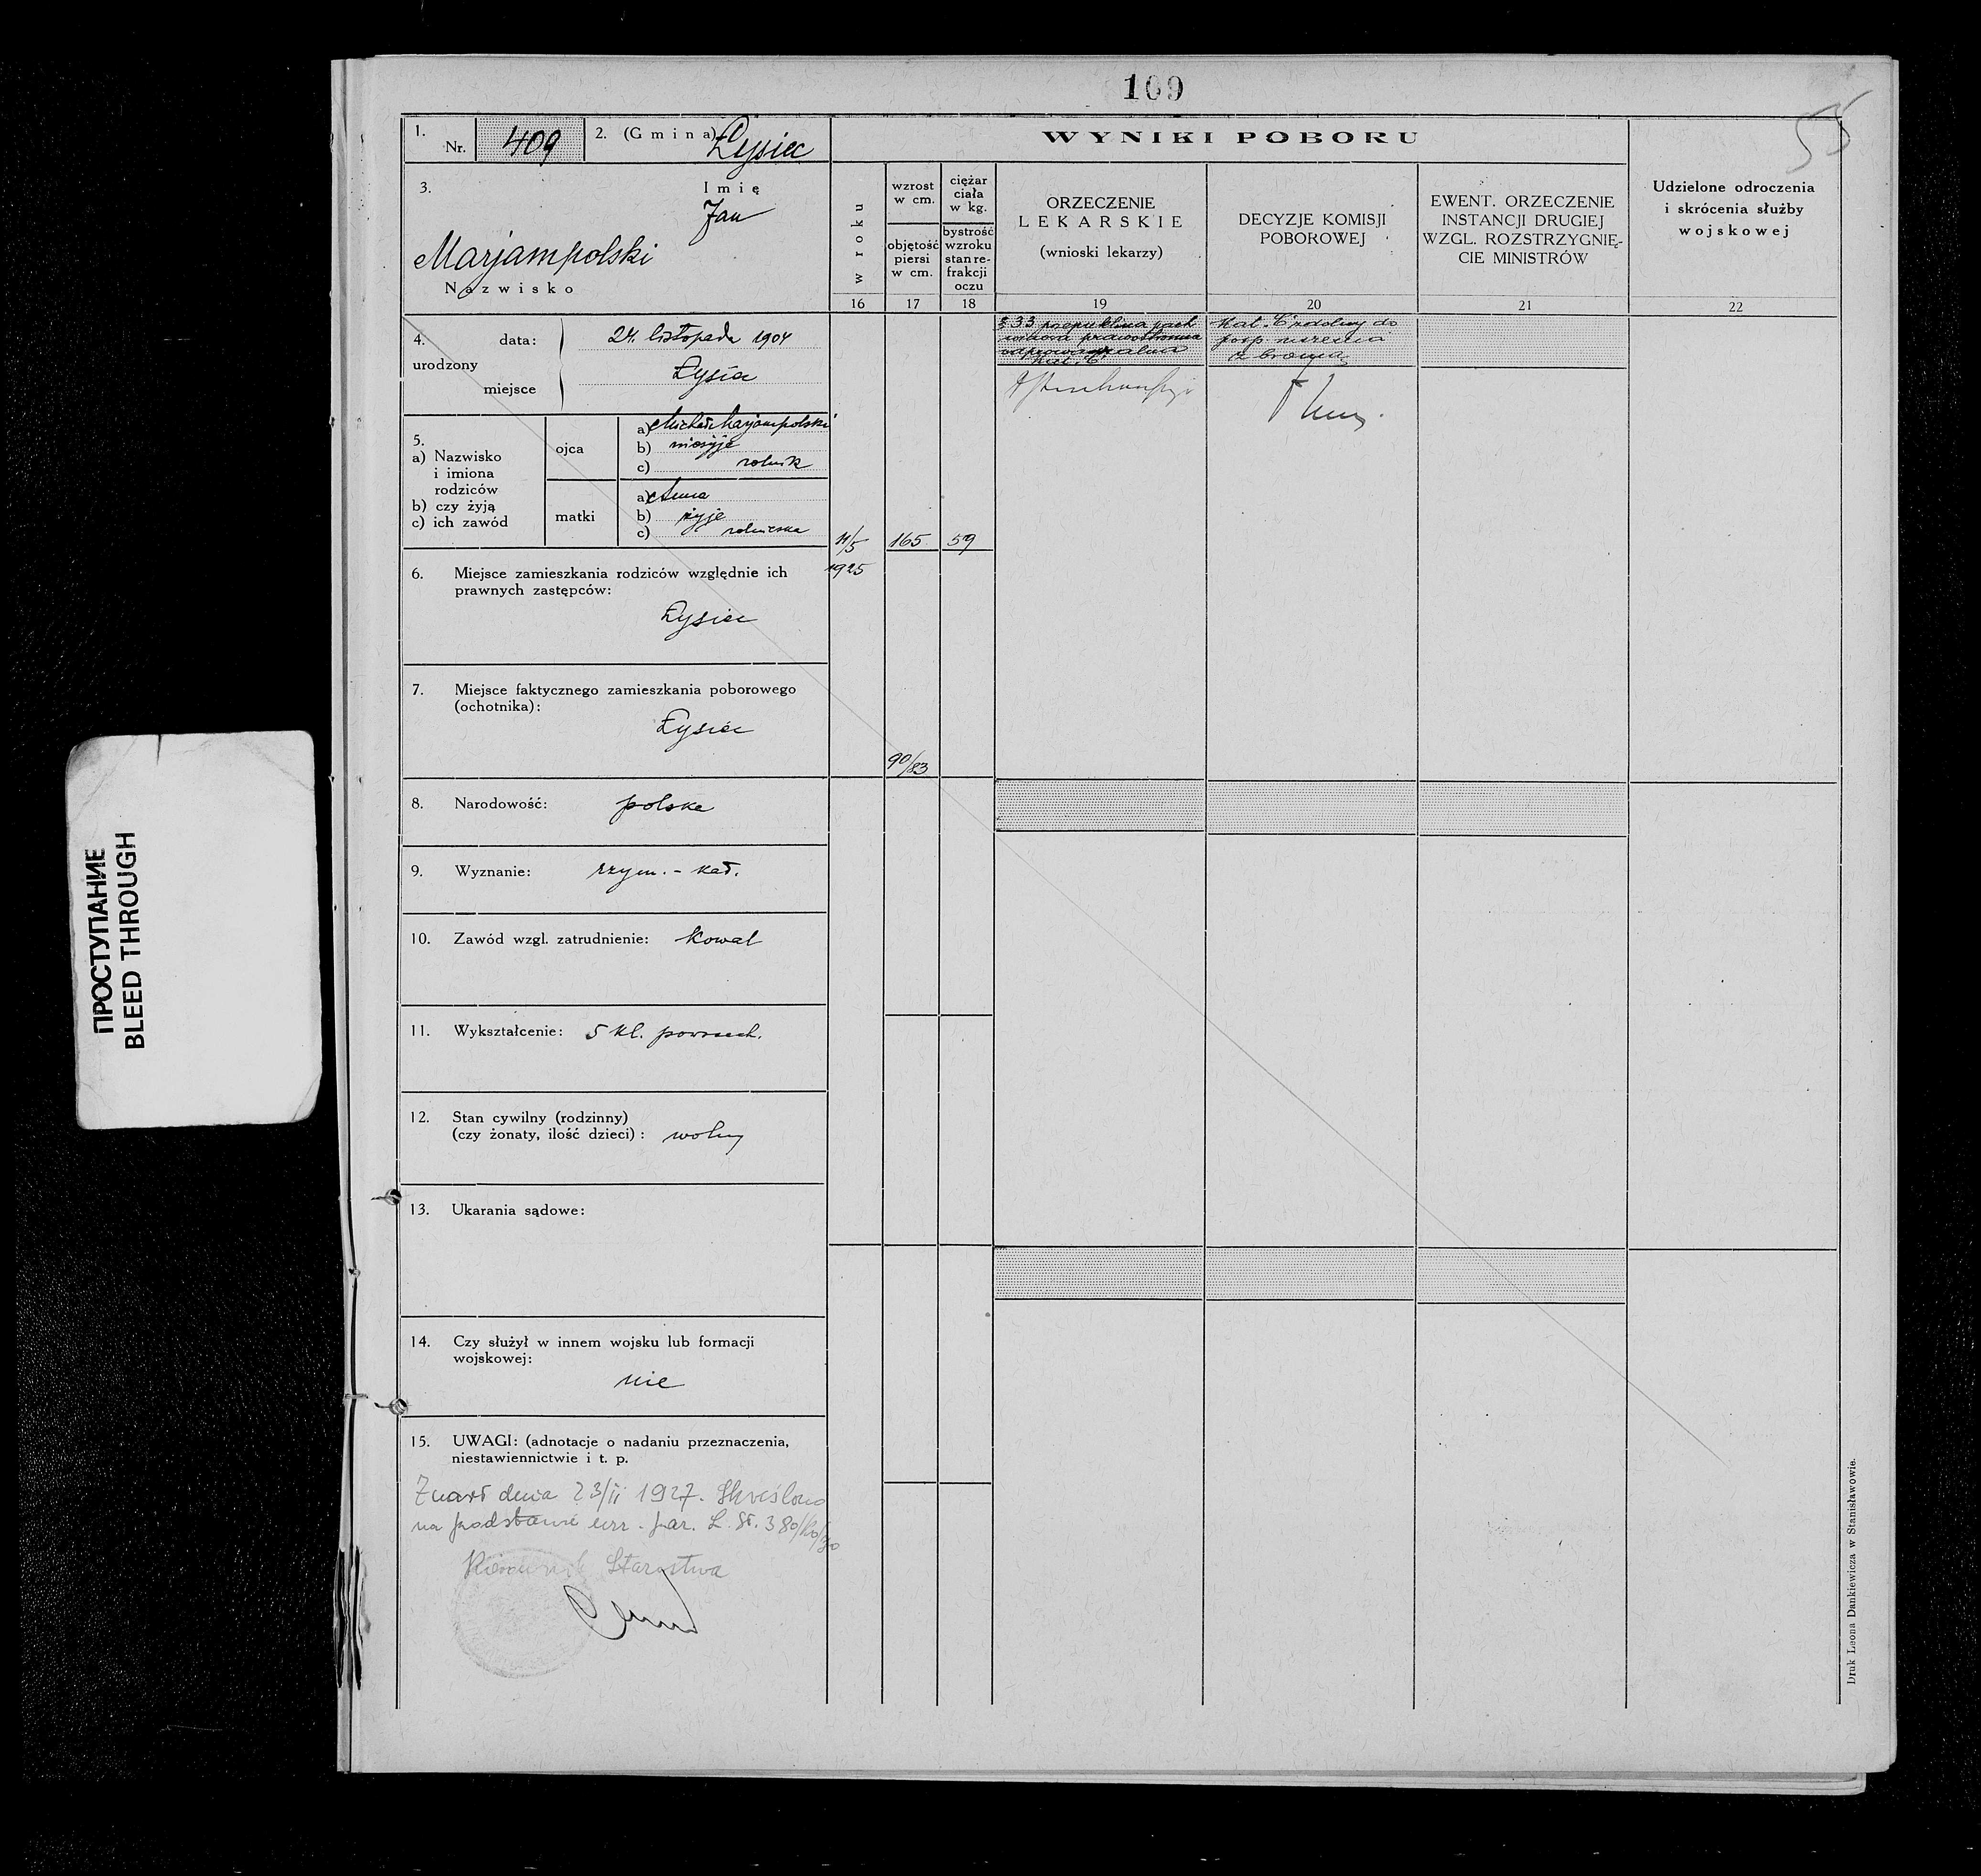 109
55
1. Nr. 409
2. (Gmina) Łysiec
3. Imię
Jan
Marjampolski
Nazwisko
4. urodzony
data: 24. listopada 1904
miejsce Łysiec
5.
a) Nazwisko i imiona rodziców
b) czy żyją
c) ich zawód
ojca
a) Michał Marjampolski
b) nieżyje
c) rolnik
matki
a) Anna
b) żyje
c) rolniczka
6. Miejsce zamieszkania rodziców względnie ich
prawnych zastępców:
Łysiec
7. Miejsce faktycznego zamieszkania poborowego
(ochotnika):
Łysiec
8. Narodowość: polska
9. Wyznanie: rzym. - kat.
10. Zawód wzgl. zatrudnienie: kowal
11. Wykształcenie: 5 kl. powszech.
12. Stan cywilny (rodzinny)
(czy żonaty, ilość dzieci): wolny
13. Ukarania sądowe:
14. Czy służył w innem wojsku lub formacji
wojskowej:
nie
15. UWAGI: (adnotacje o nadaniu przeznaczenia,
niestawiennictwie i t. p.
Zmarł dnia 23/II 1927. Skreślono
na podstawie par. L. St. 380/
Kierownik Starostwa
WYNIKI POBORU
w roku
16
wzrost
w cm.
objętość
piersi
w cm.
17
ciężar
ciała
w kg.
bystrość
wzroku
stan re-
frakcji
oczu
18
ORZECZENIE
LEKARSKIE
(wnioski lekarzy)
19
DECYZJE KOMISJI
POBOROWEJ
20
EWENT. ORZECZENIE
INSTANCJI DRUGIEJ
WZGL. ROZSTRZYGNIĘ-
CIE MINISTRÓW
21
Udzielone odroczenia
i skrócenia służby
wojskowej
22
11/5
1925
165
59
90/83
§ 33 przepuklina pach
winowa prawostronna
odprowadzalna
Kat. C
Kat. C zdolny do
posp. ruszenia
z bronią
Druk Leona Dankiewicza w Stanisławowie.
ПРОСТУПАНИЕ
BLEED THROUGH